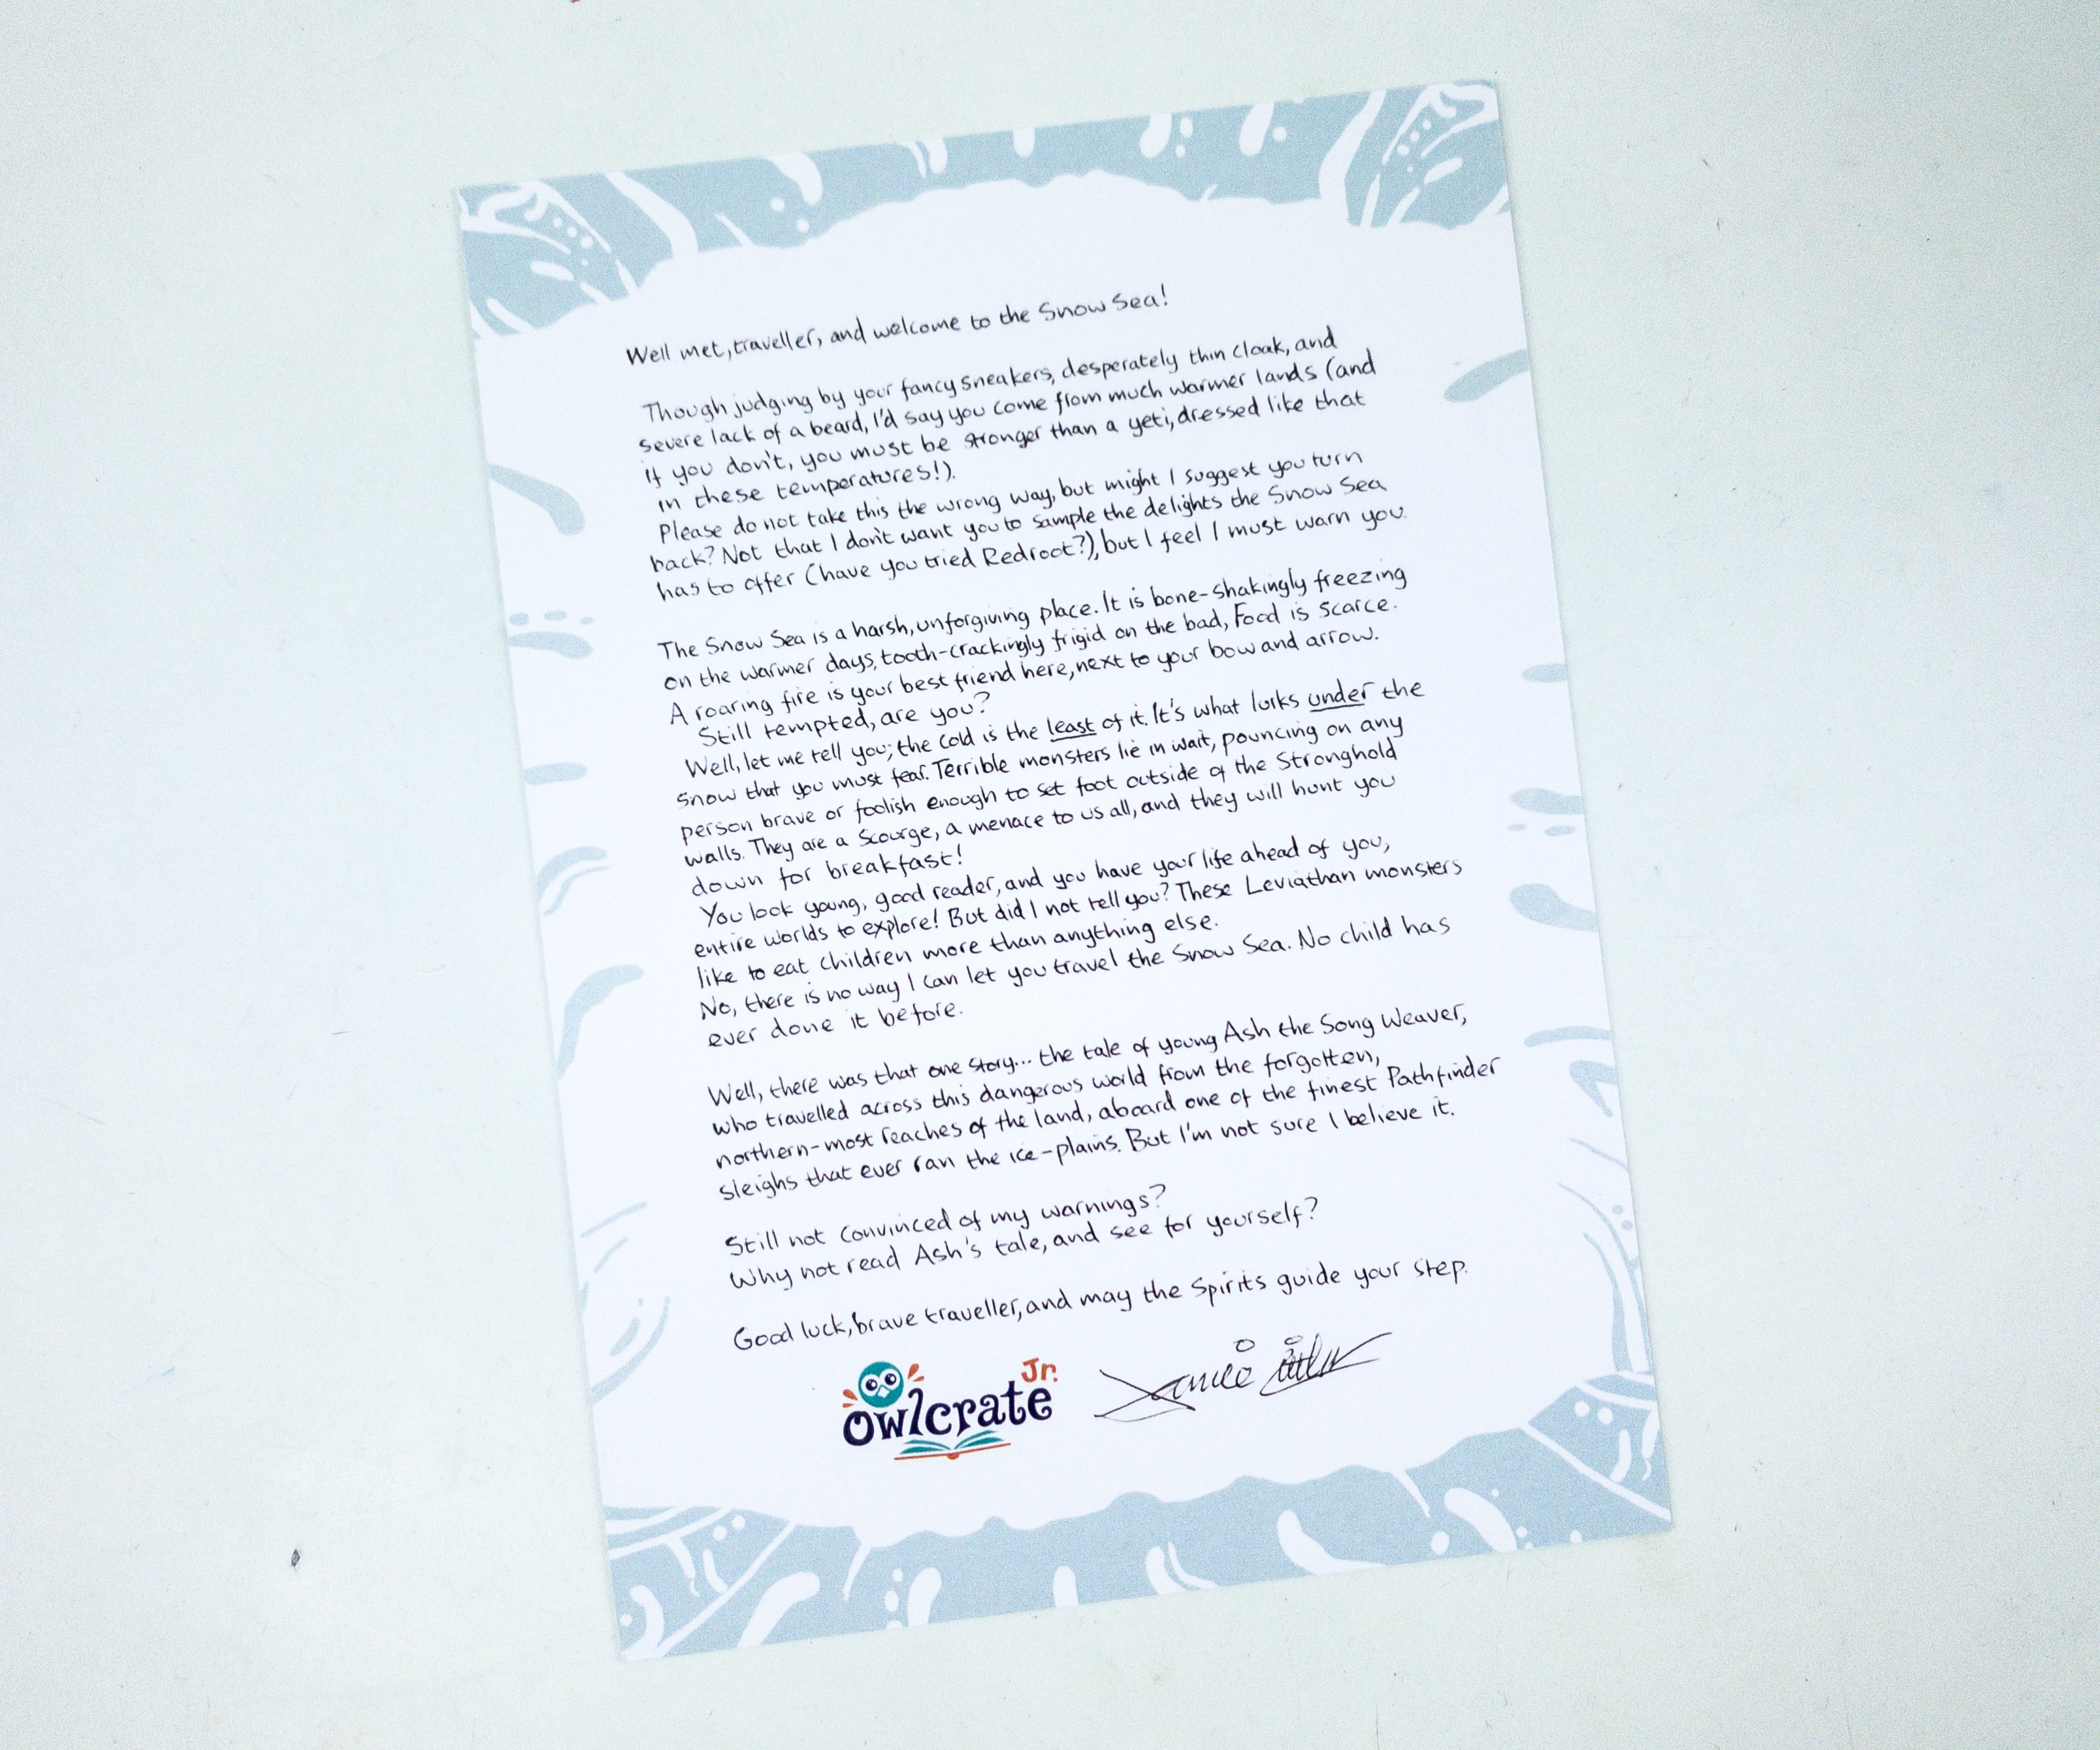 Well met, traveller, and welcome to the Snow Sea!
Though judging by your fancy sneakers, desperately thin cloak, and
severe lack of a beard, I'd say you come from much warmer lands (and
if you don't, you must be stronger than a yeti, dressed like that
in these temperatures!).
Please do not take this the wrong way, but might I suggest you turn
back? Not that I don't want you to sample the delights the Snow Sea
has to offer (have you tried Redroot?), but I feel I must warn you.
The Snow Sea is a harsh, unforgiving place. It is bone-shakingly freezing
on the warmer days, tooth-crackingly frigid on the bad, Food is scarce.
A roaring fire is your best friend here, next to your bow and arrow.
Still tempted, are you?
Well, let me tell you; the cold is the least of it. It's what lurks under the
snow that you must fear. Terrible monsters lie in wait, pouncing on any
person brave or foolish enough to set foot outside of the Stronghold
walls. They are a scourge, a menace to us all, and they will hunt you
down for breakfast!
You look young, good reader, and you have your life ahead of you,
entire worlds to explore! But did I not tell you? These Leviathan monsters
like to eat children more than anything else.
No, there is no way I can let you travel the Snow Sea. No child has
ever done it before.
Well, there was that one story... the tale of young Ash the Song Weaver,
who travelled across this dangerous world from the forgotten,
northern-most reaches of the land, aboard one of the finest Pathfinder
sleighs that ever ran the ice-plains. But I'm not sure I believe it.
Still not convinced of my warnings?
Why not read Ash's tale, and see for yourself?
Good luck, brave traveller, and may the Spirits guide your step.
owlcrate Jr.